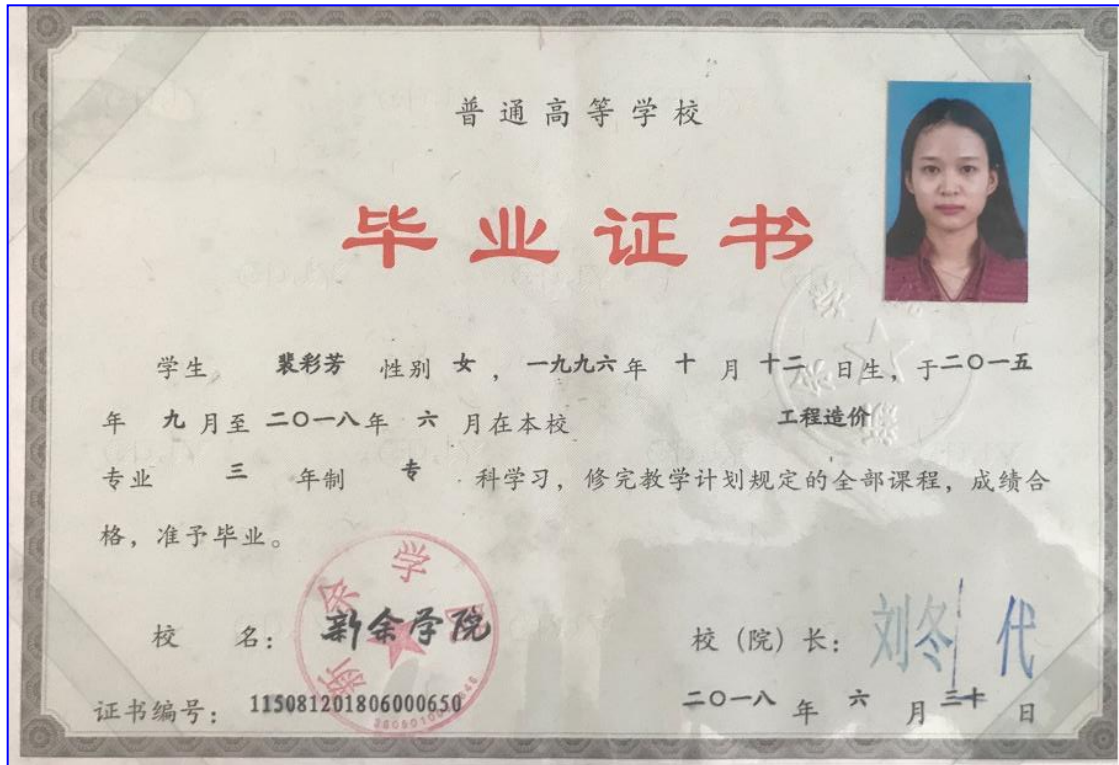 普通高等学校
毕业证书
学生 裴彩芳 性别 女 ，一九九六年 十 月 十二 日生，于二〇一五
年 九 月至 二〇一八年 六 月在本校 工程造价
专业 三 年制 专 科学习，修完教学计划规定的全部课程，成绩合
格，准予毕业。
新余学院
校 名： 新余学院
校（院）长： 刘冬 代
证书编号： 115081201806000650
二〇一八 年 六 月 三十 日